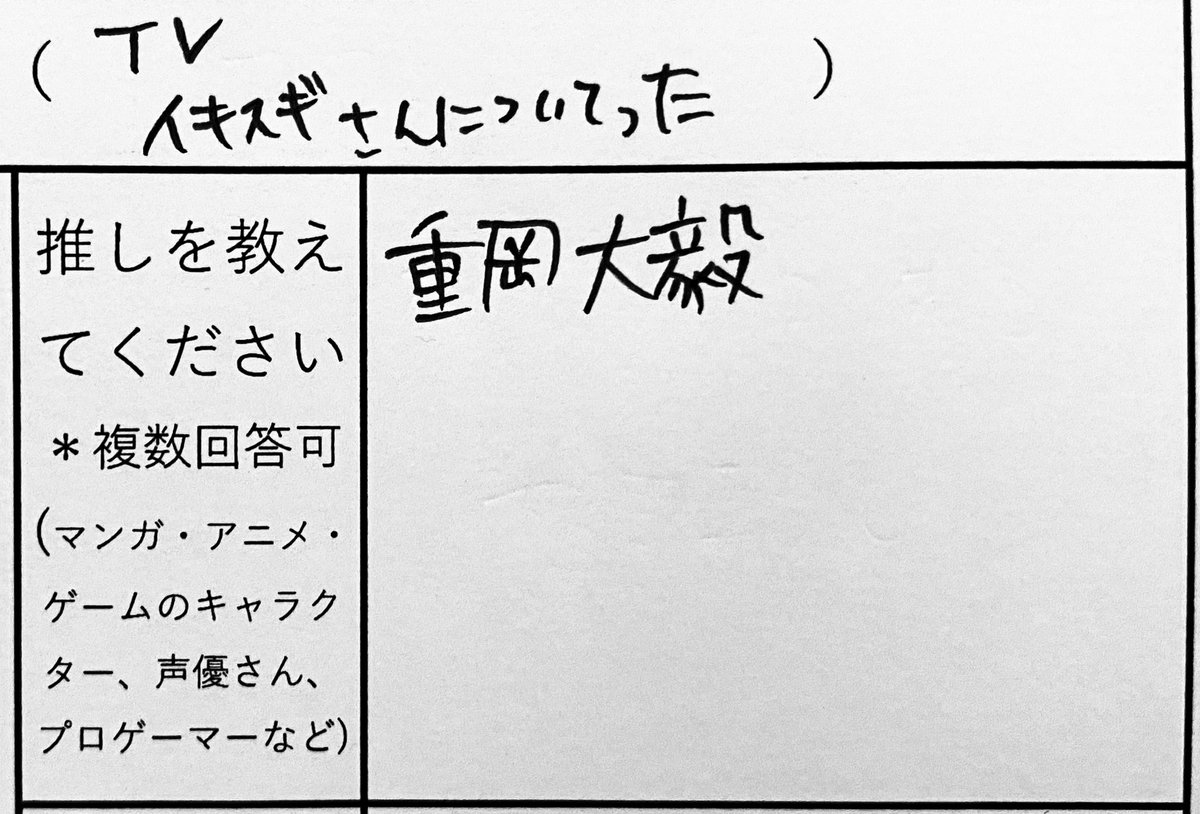 ( TV
イキスギさんについてった )
推しを教え
てください
*複数回答可
(マンガ・アニメ・
ゲームのキャラク
ター、声優さん、
プロゲーマーなど)
重岡大毅